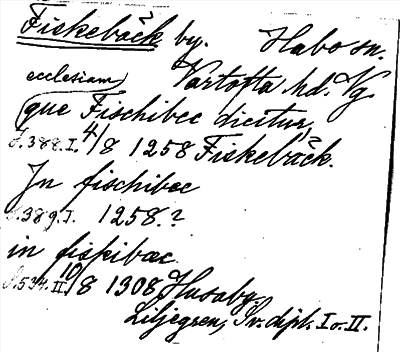 Fiskebäck by. Habo sn.
Vartofta hd. Vg.
ecclesiam
que Fischibec dicitur,
S.388.I. 4/8 1258 Fiskebäck.
In fischibec
S.389.I. 1258.?
in fiskibæc
S.534.II. 10/8 1308 Husaby.
Liljegren, Sv. dipl. I o. II.